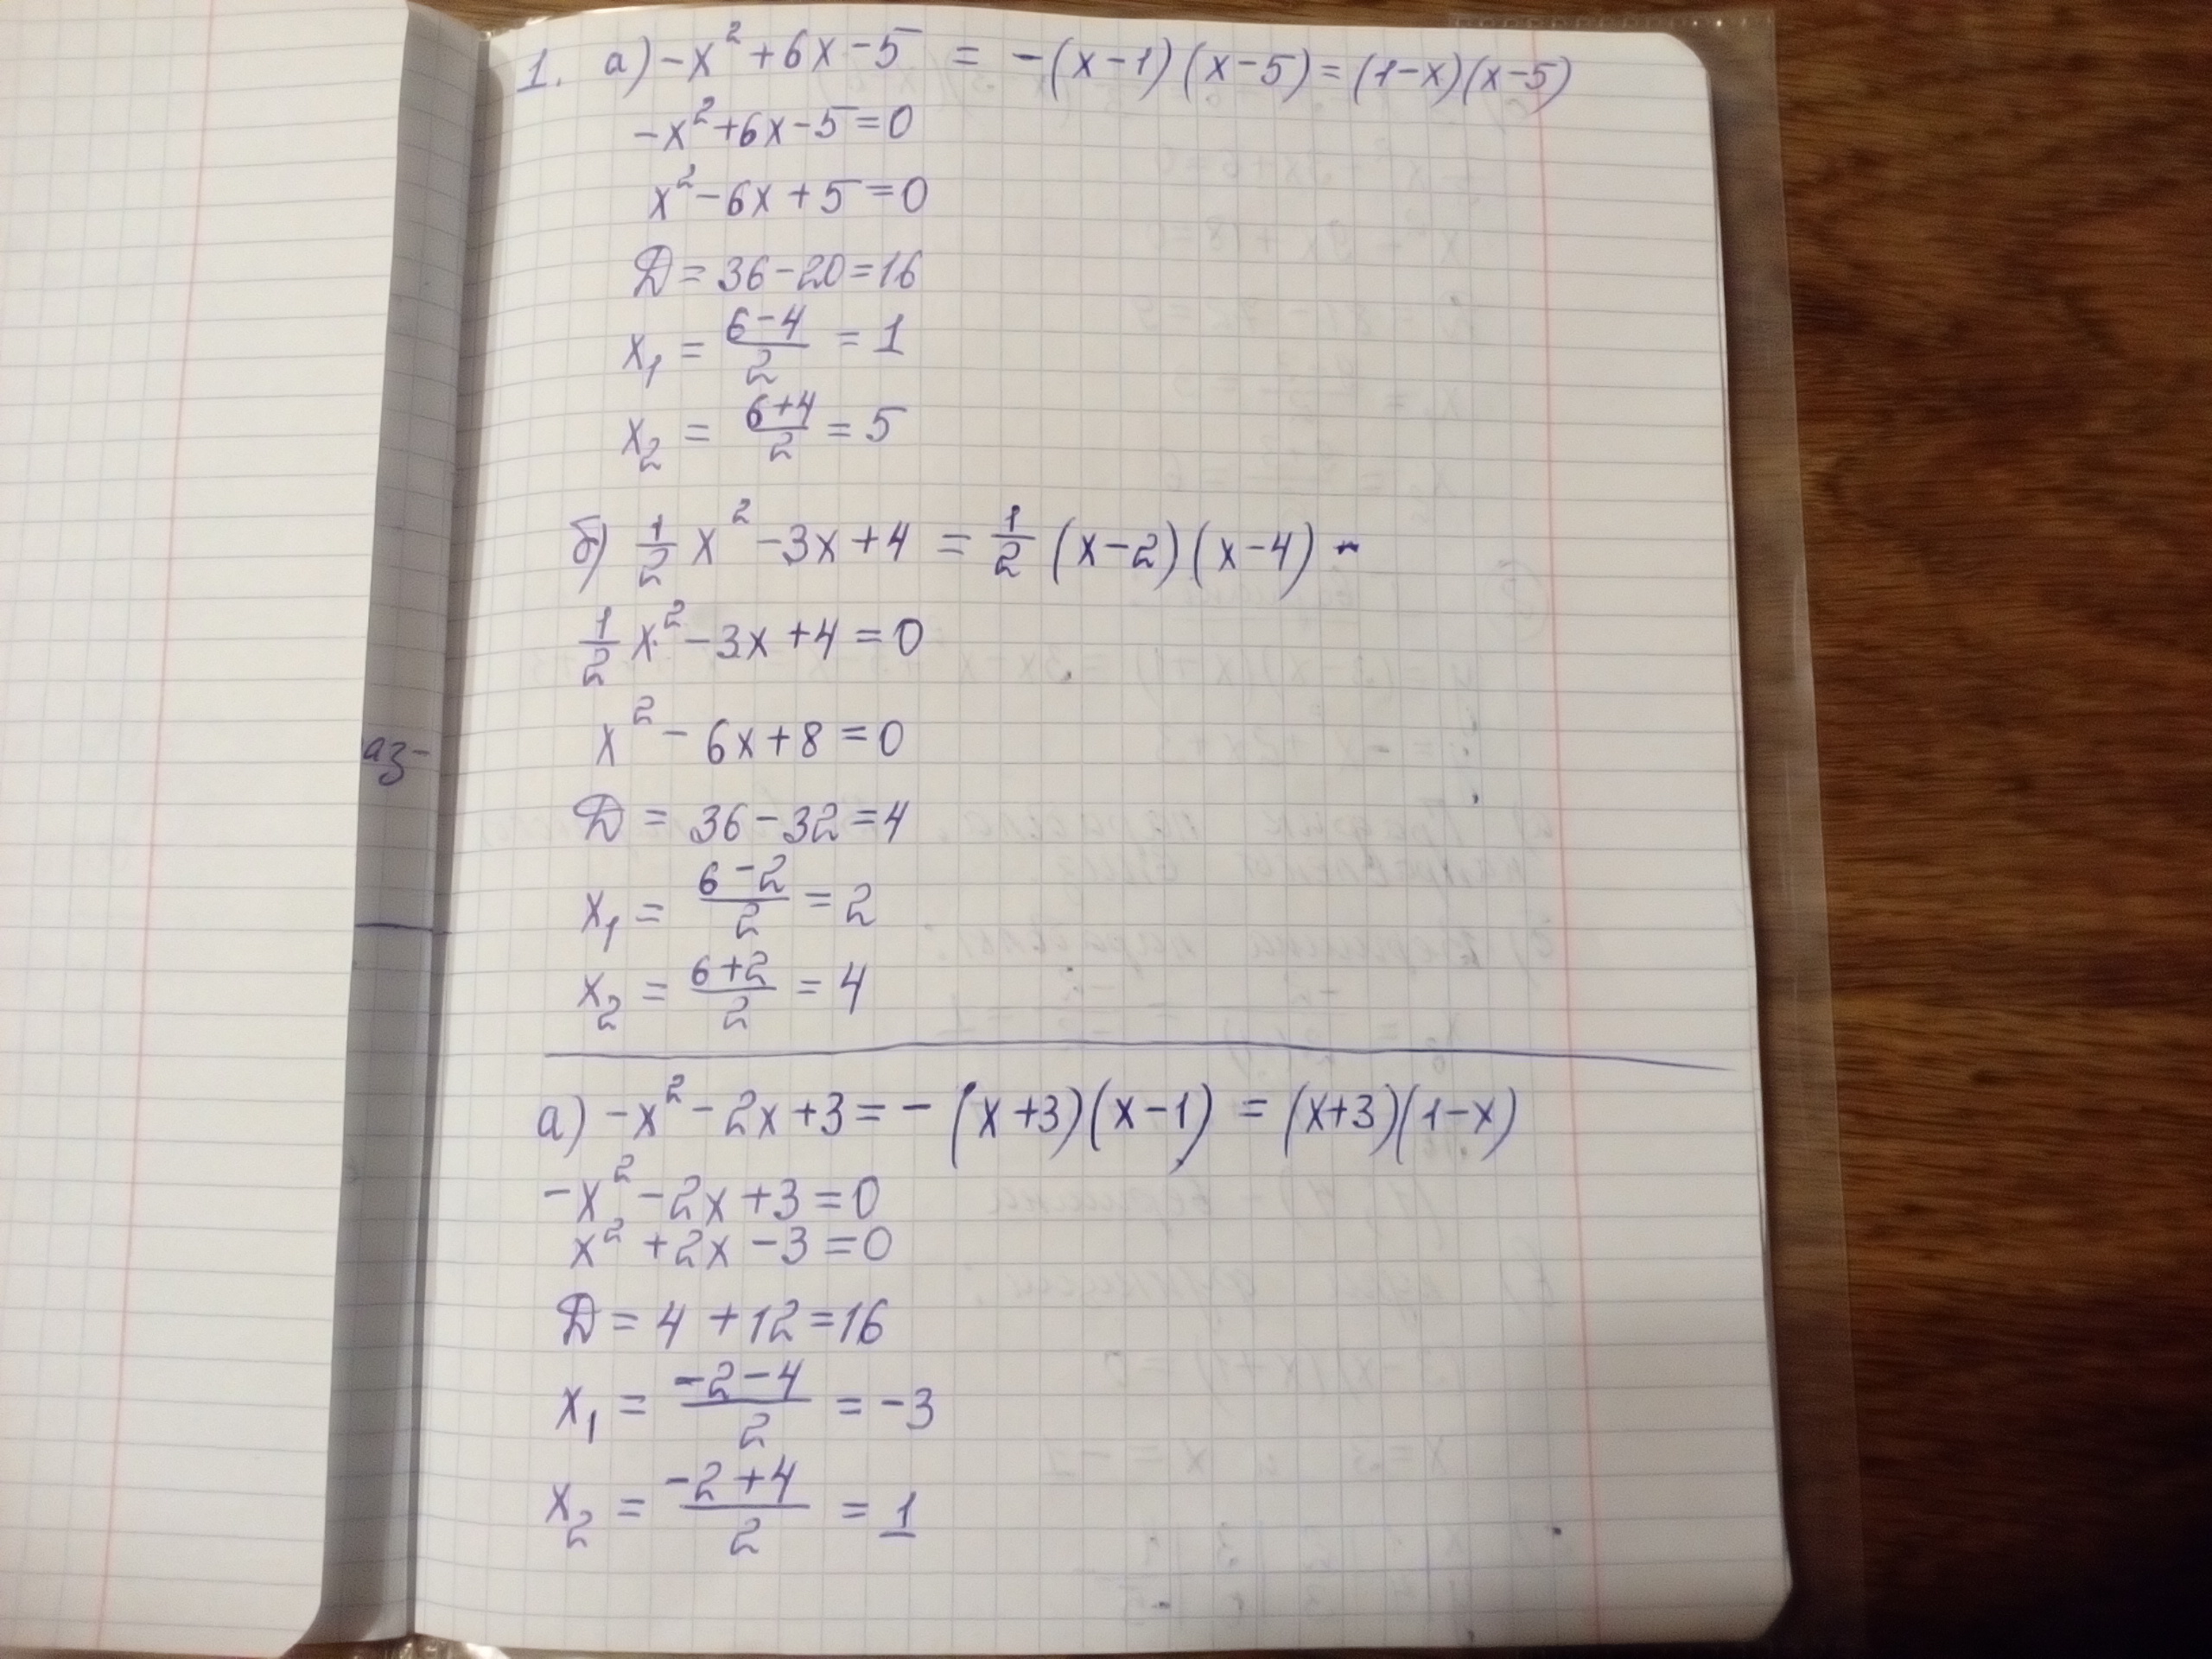 1. а) -x² + 6x - 5 = -(x-1)(x-5) = (1-x)(x-5)
-x² + 6x - 5 = 0
x² - 6x + 5 = 0
D = 36 - 20 = 16
x₁ = (6-4)/2 = 1
x₂ = (6+4)/2 = 5
б) 1/2 x² - 3x + 4 = 1/2 (x-2)(x-4) -
1/2 x² - 3x + 4 = 0
x² - 6x + 8 = 0
аз-
D = 36 - 32 = 4
x₁ = (6-2)/2 = 2
x₂ = (6+2)/2 = 4
а) -x² - 2x + 3 = -(x+3)(x-1) = (x+3)(1-x)
-x² - 2x + 3 = 0
x² + 2x - 3 = 0
D = 4 + 12 = 16
x₁ = (-2-4)/2 = -3
x₂ = (-2+4)/2 = 1